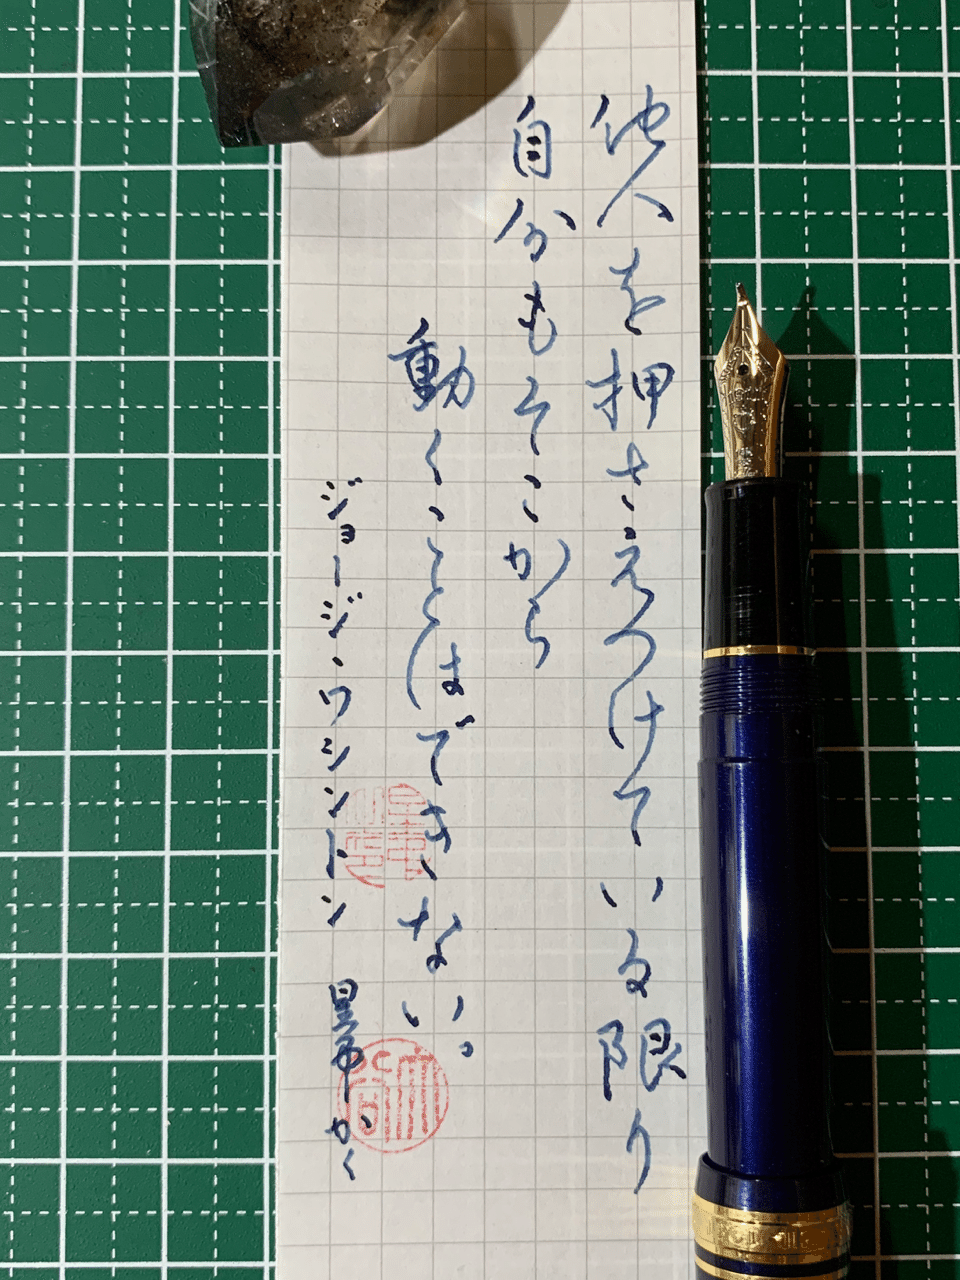 他人を押さえつけている限り
自分もそこから
動くことはできない。
ジョージ・ワシントン